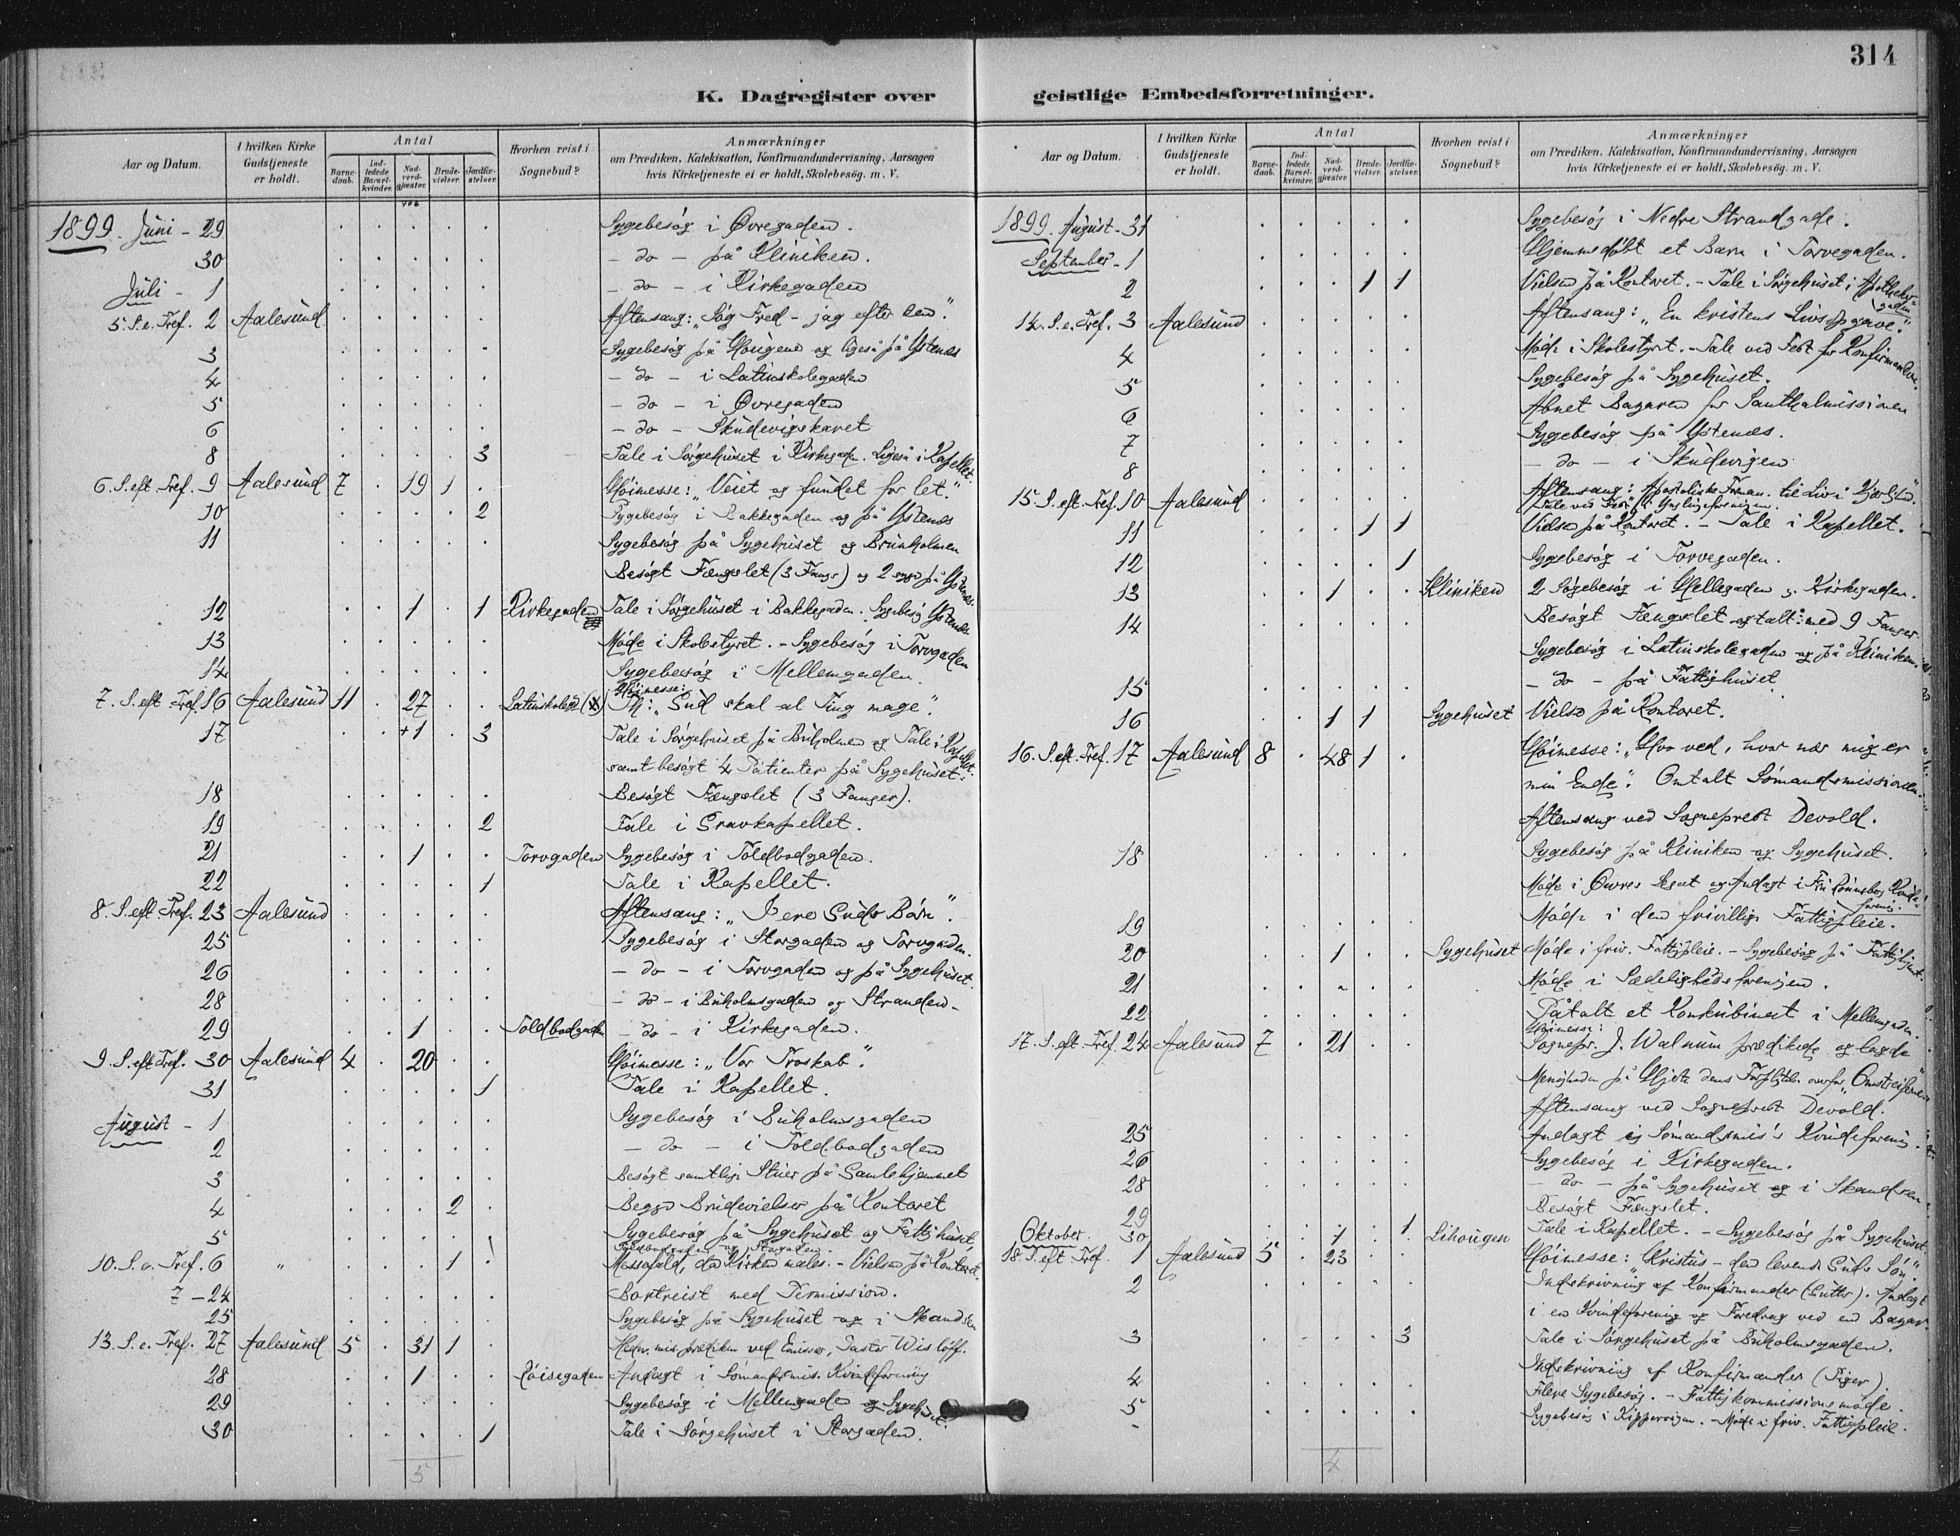 314
K. Dagregister over geistlige Embedsforretninger.
Aar og Datum.
I hvilken Kirke Gudstjeneste er holdt.
Antal
Barnedaab.
Indledede Barselkvinder.
Nadverdgjæster.
Brudevielser.
Jordfæstelser.
Hvorhen reist i Sognebud?
Anmærkninger
om Prædiken, Katekisation, Konfirmandundervisning, Aarsagen
hvis Kirketjeneste ei er holdt, Skolebesøg. m. V.
1899. Juni - 29 Sygebesøg i Øvregaden.
30 - do - på Kliniken.
Juli - 1 - do - i Kirkegaden
5. S. e. Tref. 2 Aalesund Aftensang: "Søg Fred - jag efter den".
3 Sygebesøg på Hougene og ligeså på Ystenæs
4 - do - i Latinskolegaden
5 - do - i Øvregaden
6 - do - Skudevigskaret
8 3 Tale i Sørgehuset i Kirkegaden. Ligeså i Kapellet.
6. S. eft. Tref. 9 Aalesund 7 19 1 Høimesse: "Veiet og fundet for let."
10 2 Sygebesøg i Bakkegaden og på Ystenæs
11 Sygebesøg på Sygehuset og Brunholmen
Besøgt Fængslet (3 Fanger) og 2 syge på Ystenæs.
12 1 1 Kirkegaden Tale i Sørgehuset i Bakkegaden. Sygebesøg Ystenæs
13 Møde i Skolestyret. - Sygebesøg i Torvgaden
14 Sygebesøg i Mellemgaden.
7. S. eft. Tref. 16 Aalesund 11 27 Høimesse: "Gud skal al Ting mage".
17 +1 3 Tale i Sørgehuset på Buholmen og Tale i Kapellet.
samt besøgt 4 Patienter på Sygehuset.
18 Besøgt Fængslet (3 Fanger).
19 2 Tale i Gravkapellet.
21 1 Torvgaden Sygebesøg i Toldbodgaden.
22 1 Tale i Kapellet.
8. S. eft. Tref. 23 Aalesund Aftensang: "Gud's Børn".
25 Sygebesøg i Storgaden og Torvgaden.
26 - do - i Torvgaden og på Sygehuset.
28 - do - i Buholmsgaden og Stranden -
29 1 Toldbodgaden - do - i Kirkegaden.
9. S. eft Tref. 30 Aalesund 4 20 Høimesse: "Vor Troskab".
31 1 Tale i Kapellet.
August - 1 Sygebesøg i Buholmsgaden
2 - do - i Toldbodgaden
3 Besøgt samtlige Stuer på Gamlehjemmet
4 2 Begge Brudevielser på Kontoret
5 Sygebesøg på Sygehuset og Fattighuset,
10. S. e. Tref. 6 " 1 Messefald, da Kirken males. - Vielse på Kontoret.
7 - 24 Bortreist med Permission.
25 Sygebesøg på Sygehuset og i Skandsen
13. S. e. Tref. 27 Aalesund 5 31 1 Hedn. mis. prædiken ved Emissær, Pastor Wisløff.
28 1 Andagt i Sømandsmis. Kvindforening
29 Sygebesøg i Mellemgaden og Sygehuset.
30 1 Tale i Sørgehuset i Storgaden.
5
Aar og Datum.
I hvilken Kirke Gudstjeneste er holdt.
Antal
Barnedaab.
Indledede Barselkvinder.
Nadverdgjæster.
Brudevielser.
Jordfæstelser.
Hvorhen reist i Sognebud?
Anmærkninger
om Prædiken, Katekisation, Konfirmandundervisning, Aarsagen
hvis Kirketjeneste ei er holdt, Skolebesøg. m. V.
1899. August - 31 Sygebesøg i Nedre Strandgade.
September - 1 Hjemmedøbt et Barn i Torvegaden.
2 1 1 Vielse på Kontoret. - Tale i Sørgehuset i Apothekergaden
14. S. e. Tref. 3 Aalesund Aftensang: "En kristens Livsopgave."
4 Møde i Skolestyret. - Tale ved Fest for Konfirmandene.
5 Sygebesøg på Sygehuset.
6 Åbnet Bazaren for Santhalmissionen
7 Sygebesøg på Ystenæs.
8 - do - i Skudevigen
15. S. eft. Tref. 10 Aalesund Aftensang: Apostoliske Forman. til Liv i Kjærlighed".
Tale ved Fest i Ynglingeforeningen.
11 1 1 Vielse på Kontoret. - Tale i Kapellet.
12 1 Sygebesøg i Torvegaden.
13 1 Kliniken 2 Sygebesøg i Hellegaden og Kirkegaden.
14 Besøgt Fængslet og talt med 9 Fanger.
Sygebesøg i Latinskolegaden og på Kliniken.
15 - do - på Fattighuset
16 1 1 Sygehuset Vielse på Kontoret.
16. S. eft. Tref. 17 Aalesund 8 48 1 Høimesse: "Hvo ved, hvor nær mig er
min Ende". Omtalt Sømandsmissionen.
Aftensang ved Sogneprest Devold.
18 Sygebesøg på Kliniken og Sygehuset.
Møde i Legat og Andagt i
19 Møde i den frivillige Fattigpleie.
20 1 Sygehuset Møde i friv. Fattigpleie. - Sygebesøg på Fattighuset.
21 Møde i Sædelighedsforeningen.
22 Påtalt et Konkubinat i Mellemgaden.
17. S. eft. Tref. 24 Aalesund 7 21 Høimesse: Sognepr. J. Walnum prædikede og lagde
Menigheden på Hjerte dens Forpligtelse overfor "Omstreiferne"
Aftensang ved Sogneprest Devold.
25 Andagt i Sømandsmis's Kvindeforening.
26 Sygebesøg i Kirkegaden.
28 - do - på Sygehuset og i Skandsen
Besøgt Fængslet.
29 1 Tale i Kapellet. - Sygebesøg på Sygehuset.
30 1 Lihougen
Oktober.
18. S. eft Tref. 1 Aalesund 5 23 Høimesse: "Kristus - den levende Guds Søn."
2 Indskrivning af Konfirmander (Gutter). Andagt
i en Kvindeforening og Foredrag ved en Bazar.
3 3 Tale i Sørgehuset på Buholmsgaden.
4 Indskrivning af Konfirmander (Piger)
Flere Sygebesøg. - Fattigkommissionsmøde.
5 Sygebesøg i Kippervigen. - Møde i friv. Fattigpleie.
4